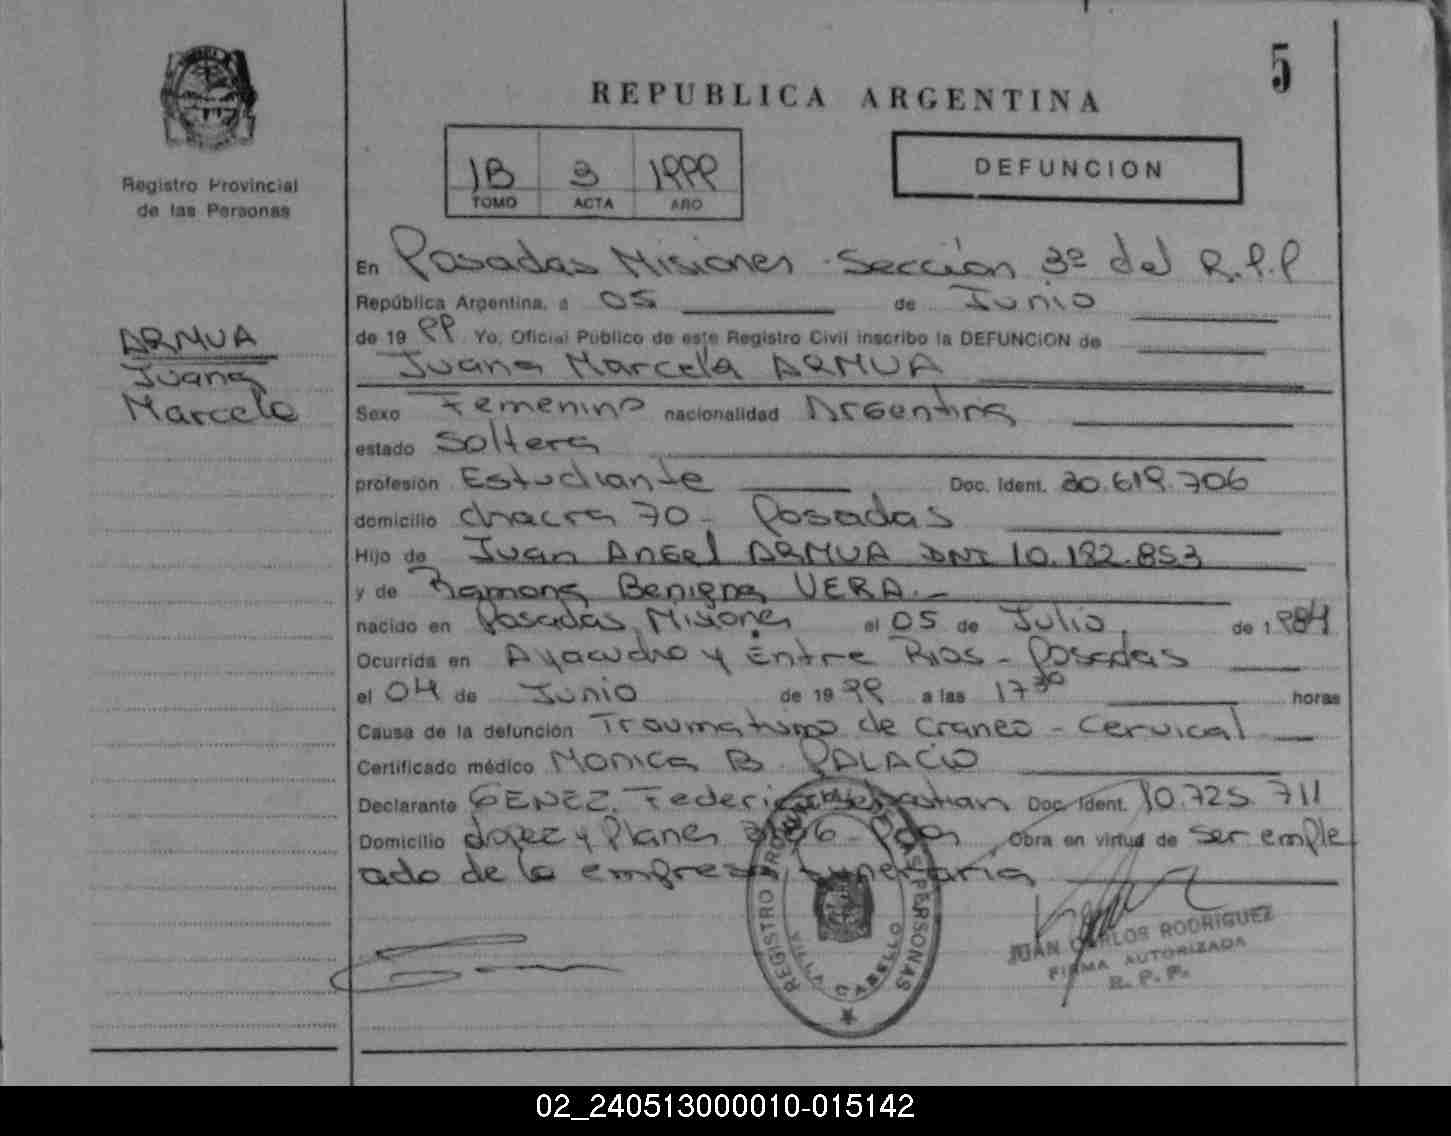 5
REPUBLICA ARGENTINA
Registro Provincial
de las Personas
1B 3 1999
TOMO ACTA AÑO
DEFUNCION
En Posadas Misiones - Sección 3º del R.P.P
República Argentina, a 05 de Junio
de 19 99 Yo, Oficial Público de este Registro Civil inscribo la DEFUNCION de
Juana Marcela ARMUA
ARMUA
Juana
Marcela
Sexo Femenino nacionalidad Argentina
estado Soltera
profesión Estudiante Doc. Ident. 30.619.706
domicilio chacra 70 - Posadas
Hijo de Juan Angel ARMUA DNI 10.182.853
y de Ramona Benigna VERA.-
nacido en Posadas, Misiones el 05 de Julio, de 1 984
Ocurrida en Ayacucho y Entre Rios - Posadas
el 04 de Junio de 19 99 a las 17 30 horas
Causa de la defunción Traumatismo de Craneo - Cervical
Certificado médico Monica B. PALACIO
Declarante GENEZ, Federico Sebastian Doc. Ident. 10.725.711
Domicilio López y Planes - Pdas Obra en virtud de ser emple
ado de la empresa funeraria
REGISTRO PROVINCIAL DE LAS PERSONAS
VILLA CABELLO
JUAN CARLOS RODRIGUEZ
FIRMA AUTORIZADA
R. P. P.
02_240513000010-015142